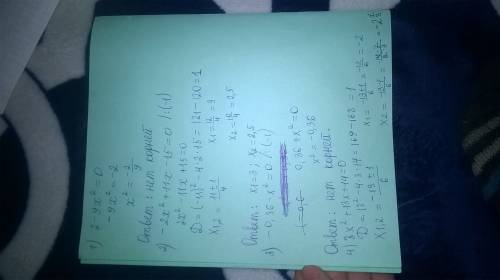 1) 2-9x²=0
-9x²=-2
x²=-2/9
Ответ: нет корней
2) -2x²+11x-15=0 /·(-1)
2x²-11x+15=0
D=(-11)²-4·2·15=121-120=1
x1,2=11±1/4 x1=12/4=3
x2=10/4=2,5
Ответ: x1=3; x2=2,5
3) -0,36-x²=0 /·(-1)
0,36+x²=0
x²=-0,36
Ответ: нет корней.
4) 3x²+13x+14=0
D=13²-4·3·14=169-168=1
x1,2=-13±1/6 x1=-13+1/6=-12/6=-2
x2=-13-1/6=-14/6=